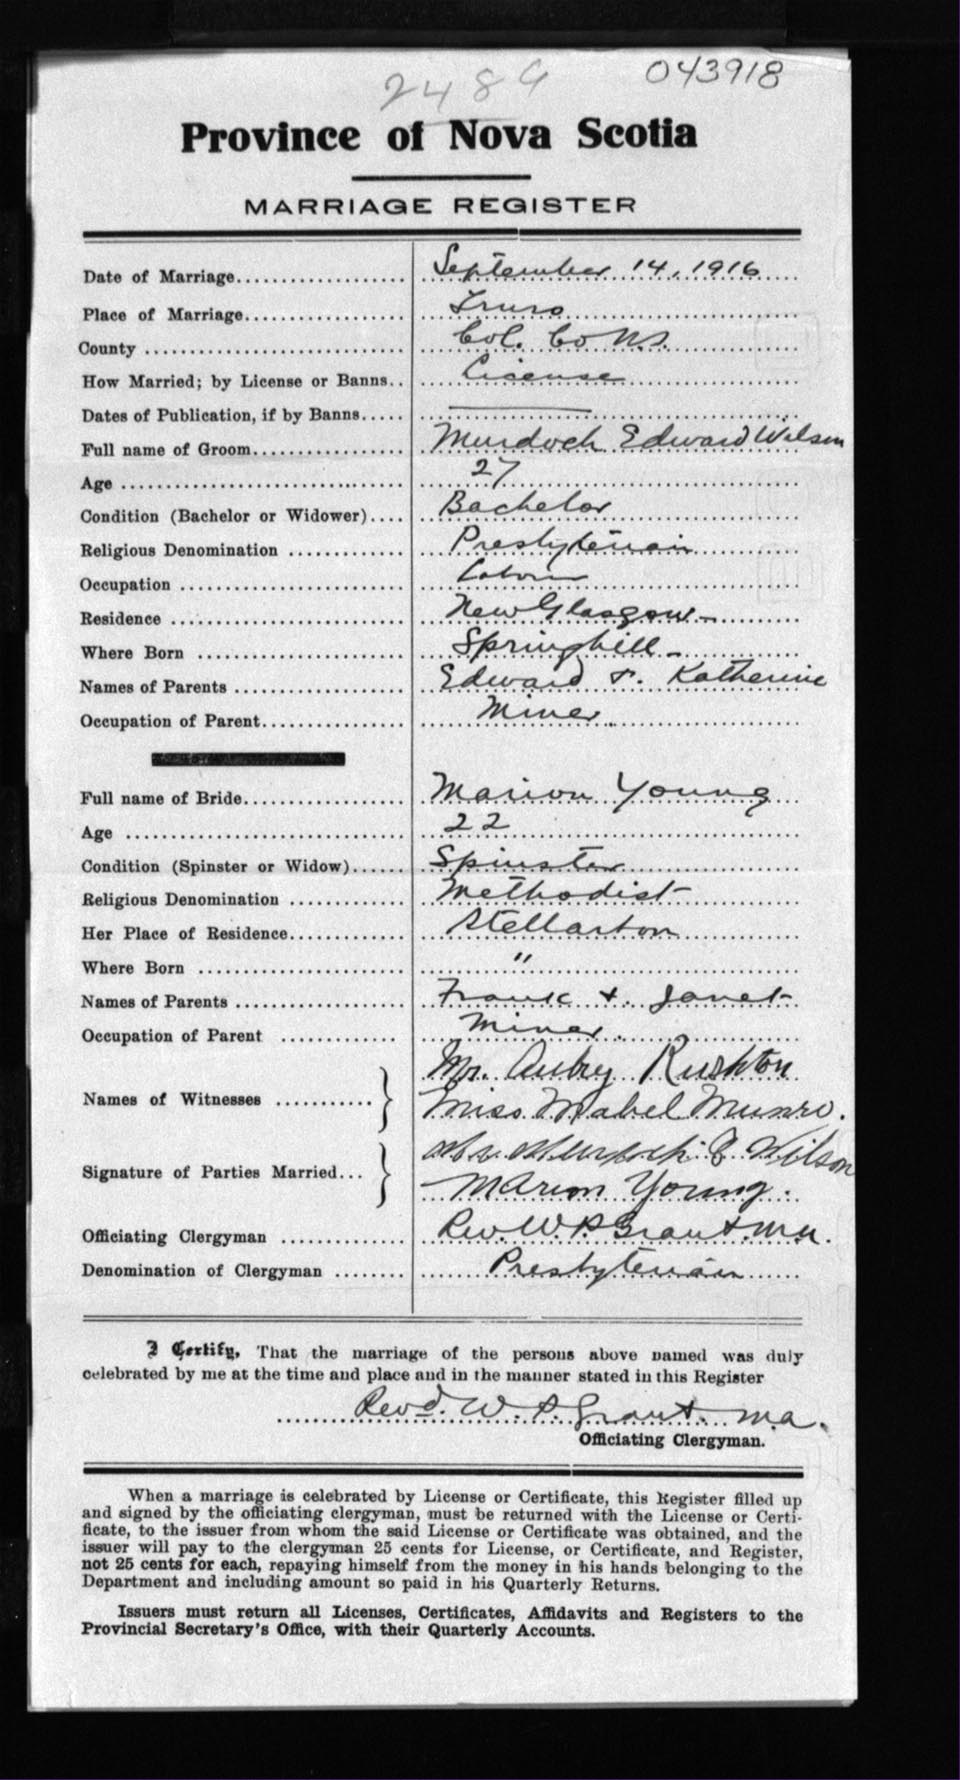 2489 043918
Province of Nova Scotia
MARRIAGE REGISTER
Date of Marriage.................... September 14, 1916
Place of Marriage................... Truro
County ............................. Col. Co N.S.
How Married; by License or Banns.. License
Dates of Publication, if by Banns..... ———
Full name of Groom................. Murdoch Edward Wilson
Age ................................ 27
Condition (Bachelor or Widower).... Bachelor
Religious Denomination ............ Presbyterian
Occupation .........................
Residence .......................... New Glasgow
Where Born ........................ Springhill
Names of Parents ................... Edward & Katherine
Occupation of Parent................ Miner
Full name of Bride.................. Marion Young
Age ................................ 22
Condition (Spinster or Widow)...... Spinster
Religious Denomination ............ Methodist
Her Place of Residence............. Stellarton
Where Born ........................ "
Names of Parents ................... Frank & Janet
Occupation of Parent ............. Miner
Mr. Aubry Rushton
Names of Witnesses ........... }
Miss Mabel Munro.
Mr Murdoch E Wilson
Signature of Parties Married... }
Marion Young.
Officiating Clergyman ............. Rev. W. P. Grant. M.A.
Denomination of Clergyman ........ Presbyterian
I Certify, That the marriage of the persons above named was duly
celebrated by me at the time and place and in the manner stated in this Register
Revd. W. P. Grant. M.A.
Officiating Clergyman.
When a marriage is celebrated by License or Certificate, this Register filled up
and signed by the officiating clergyman, must be returned with the License or Certi-
ficate, to the issuer from whom the said License or Certificate was obtained, and the
issuer will pay to the clergyman 25 cents for License, or Certificate, and Register,
not 25 cents for each, repaying himself from the money in his hands belonging to the
Department and including amount so paid in his Quarterly Returns.
Issuers must return all Licenses, Certificates, Affidavits and Registers to the
Provincial Secretary's Office, with their Quarterly Accounts.